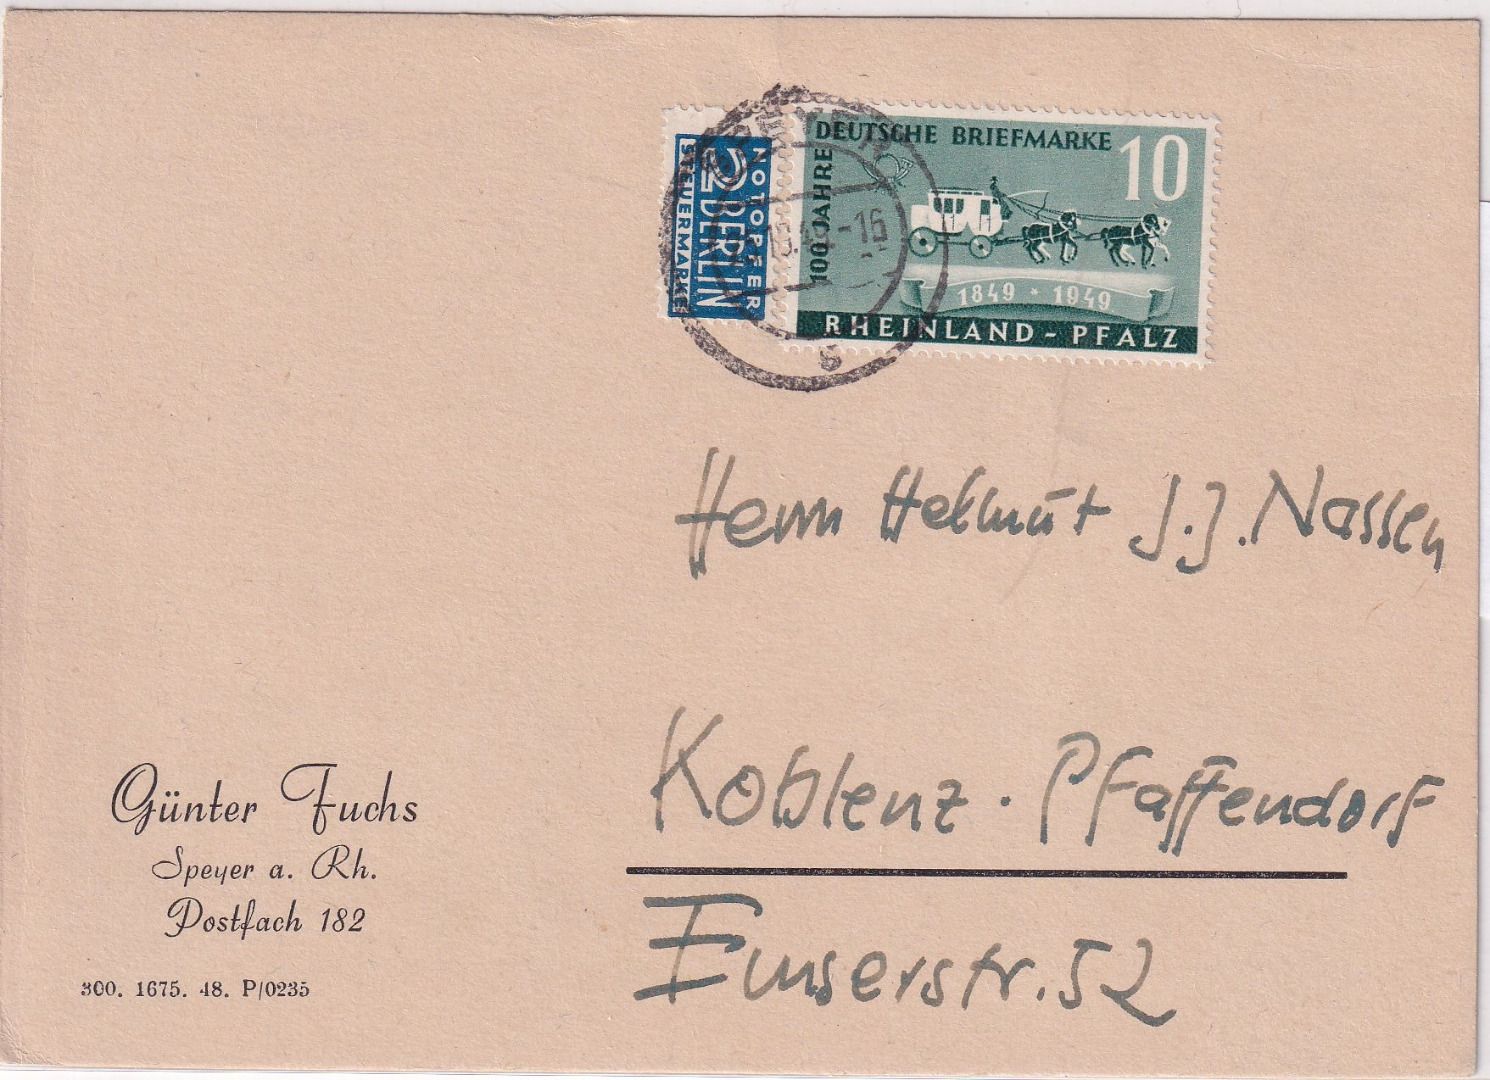 DEUTSCHE BRIEFMARKE
10
100 JAHRE
1849 * 1949
RHEINLAND - PFALZ
NOTOPFER
2 BERLIN
STEUERMARKE
SPEYER
10.49.-16
b
Herrn Helmut J.J. Nassen
Koblenz - Pfaffendorf
Emserstr. 52
Günter Fuchs
Speyer a. Rh.
Postfach 182
300. 1675. 48. P/0235